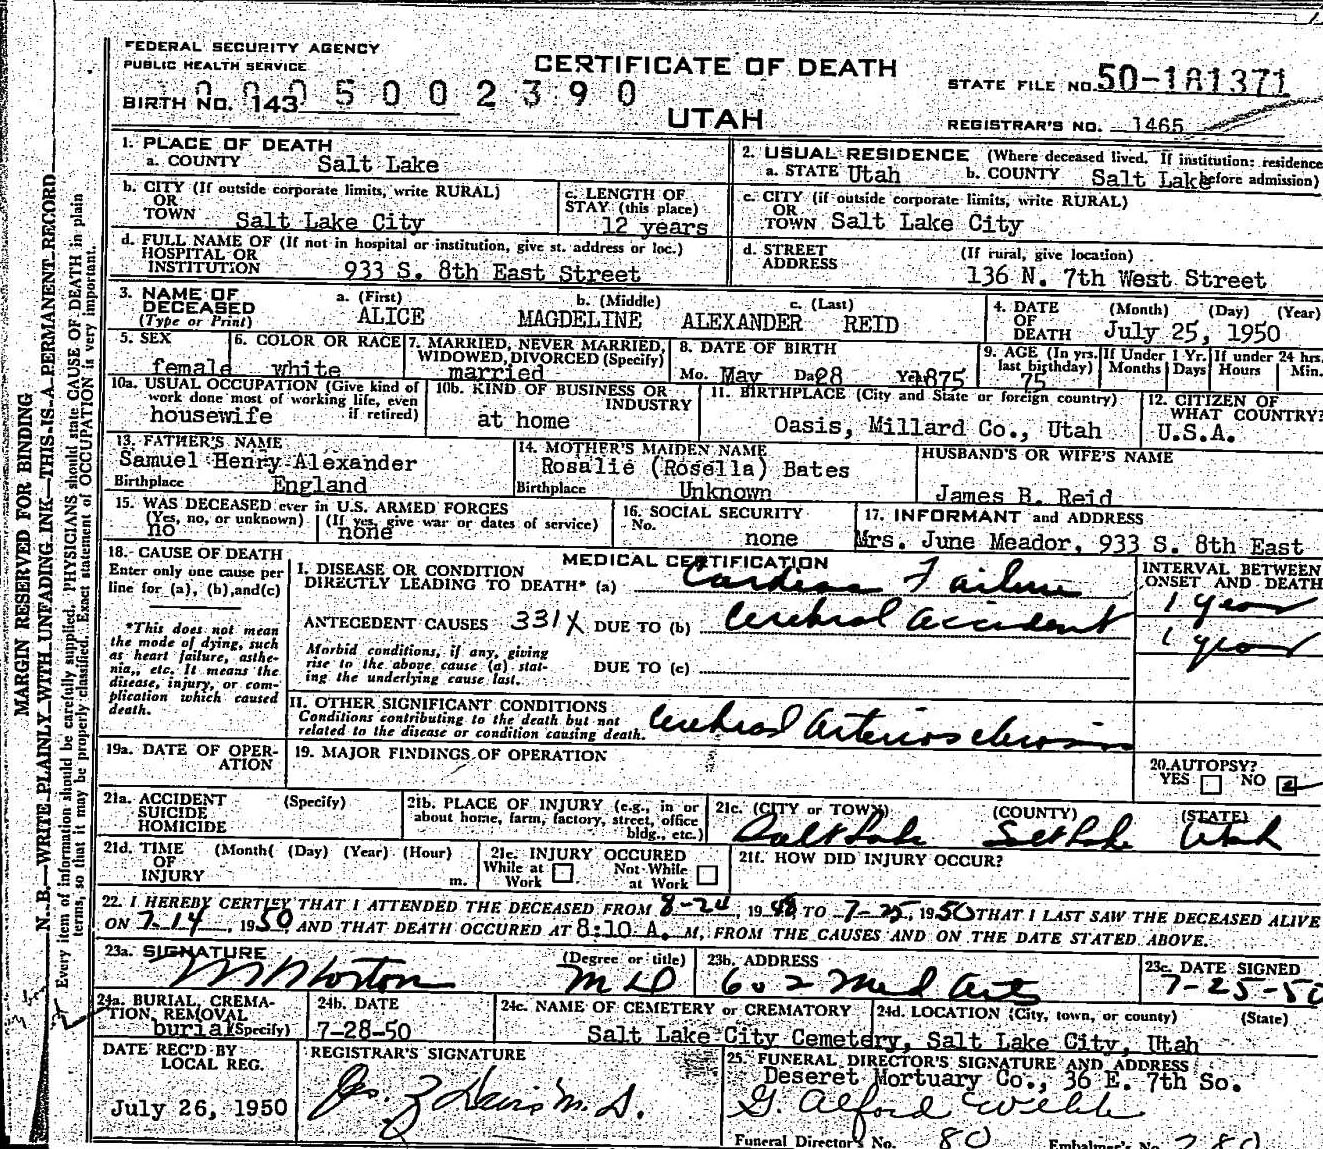 FEDERAL SECURITY AGENCY
PUBLIC HEALTH SERVICE
CERTIFICATE OF DEATH
STATE FILE NO. 50-181371
0005002390
BIRTH NO. 143
UTAH
REGISTRAR'S NO. 1465
1. PLACE OF DEATH
a. COUNTY Salt Lake
2. USUAL RESIDENCE (Where deceased lived. If institution: residence before admission)
a. STATE Utah b. COUNTY Salt Lake
b. CITY (If outside corporate limits, write RURAL)
OR
TOWN Salt Lake City
c. LENGTH OF
STAY (this place)
12 years
c. CITY (if outside corporate limits, write RURAL)
OR
TOWN Salt Lake City
d. FULL NAME OF (If not in hospital or institution, give st. address or loc.)
HOSPITAL OR
INSTITUTION 933 S. 8th East Street
d. STREET
ADDRESS
(If rural, give location)
136 N. 7th West Street
3. NAME OF
DECEASED
(Type or Print)
a. (First) b. (Middle) c. (Last)
ALICE MAGDELINE ALEXANDER REID
4. DATE
OF
DEATH
(Month) (Day) (Year)
July 25, 1950
5. SEX
female
6. COLOR OR RACE
white
7. MARRIED, NEVER MARRIED,
WIDOWED, DIVORCED (Specify)
married
8. DATE OF BIRTH
Mo. May Da 28 Yr 1875
9. AGE (In yrs.
last birthday)
75
If Under 1 Yr.
Months Days
If under 24 hrs.
Hours Min.
10a. USUAL OCCUPATION (Give kind of
work done most of working life, even
if retired)
housewife
10b. KIND OF BUSINESS OR
INDUSTRY
at home
11. BIRTHPLACE (City and State or foreign country)
Oasis, Millard Co., Utah
12. CITIZEN OF
WHAT COUNTRY?
U.S.A.
13. FATHER'S NAME
Samuel Henry Alexander
Birthplace England
14. MOTHER'S MAIDEN NAME
Rosalie (Rosella) Bates
Birthplace Unknown
HUSBAND'S OR WIFE'S NAME
James B. Reid
15. WAS DECEASED ever in U.S. ARMED FORCES
(Yes, no, or unknown) (If yes, give war or dates of service)
no none
16. SOCIAL SECURITY
No.
none
17. INFORMANT and ADDRESS
Mrs. June Meador, 933 S. 8th East
18. CAUSE OF DEATH
Enter only one cause per
line for (a), (b), and (c)
*This does not mean
the mode of dying, such
as heart failure, asthe-
nia,, etc. It means the
disease, injury, or com-
plication which caused
death.
MEDICAL CERTIFICATION
I. DISEASE OR CONDITION
DIRECTLY LEADING TO DEATH* (a) Cardiac Failure
ANTECEDENT CAUSES 331X DUE TO (b) Cerebral accident
Morbid conditions, if any, giving
rise to the above cause (a) stat-
ing the underlying cause last.
DUE TO (c)
II. OTHER SIGNIFICANT CONDITIONS
Conditions contributing to the death but not
related to the disease or condition causing death.
Cerebral arteriosclerosis
INTERVAL BETWEEN
ONSET AND DEATH
1 year
1 year
19a. DATE OF OPER-
ATION
19. MAJOR FINDINGS OF OPERATION
20. AUTOPSY?
YES NO
21a. ACCIDENT (Specify)
SUICIDE
HOMICIDE
21b. PLACE OF INJURY (e.g., in or
about home, farm, factory, street, office
bldg., etc.)
21c. (CITY or TOWN) (COUNTY) (STATE)
Salt Lake Salt Lake Utah
21d. TIME (Month( (Day) (Year) (Hour)
OF
INJURY m.
21e. INJURY OCCURED
While at Work Not While at Work
21f. HOW DID INJURY OCCUR?
22. I HEREBY CERTIFY THAT I ATTENDED THE DECEASED FROM 8-24, 1948 TO 7-25, 1950 THAT I LAST SAW THE DECEASED ALIVE
ON 7-14, 1950 AND THAT DEATH OCCURED AT 8:10 A. M, FROM THE CAUSES AND ON THE DATE STATED ABOVE.
23a. SIGNATURE (Degree or title)
Horton MD
23b. ADDRESS
602 Med Arts
23c. DATE SIGNED
7-25-50
24a. BURIAL, CREMA-
TION, REMOVAL
burial (Specify)
24b. DATE
7-28-50
24c. NAME OF CEMETERY or CREMATORY 24d. LOCATION (City, town, or county) (State)
Salt Lake City Cemetery, Salt Lake City, Utah
DATE REC'D BY
LOCAL REG.
July 26, 1950
REGISTRAR'S SIGNATURE
M.D.
25. FUNERAL DIRECTOR'S SIGNATURE AND ADDRESS
Deseret Mortuary Co., 36 E. 7th So.
G. Alford
Funeral Director's No. 80 Embalmer's No. 280
MARGIN RESERVED FOR BINDING
N. B.—WRITE PLAINLY WITH UNFADING INK—THIS IS A PERMANENT RECORD
Every item of information should be carefully supplied. PHYSICIANS should state CAUSE OF DEATH in plain
terms, so that it may be properly classified. Exact statement of OCCUPATION is very important.